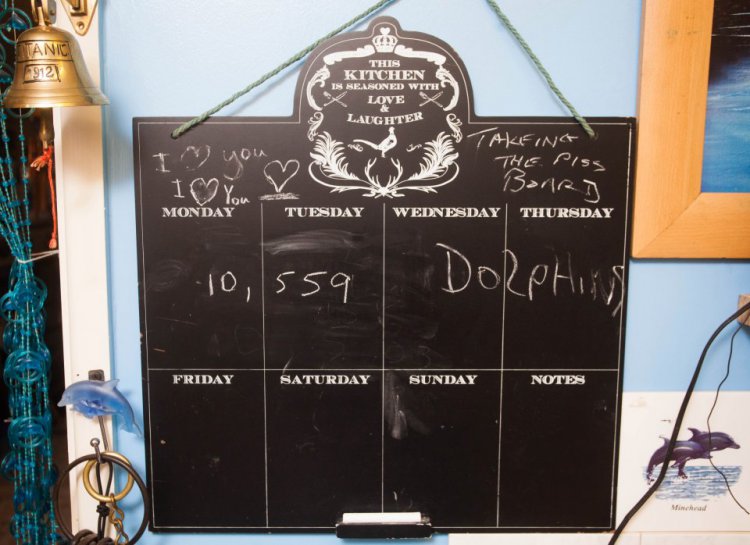 TITANIC
1912
THIS
KITCHEN
IS SEASONED WITH
LOVE
&
LAUGHTER
I ♡ you
I ♡ You
TAKEING
THE PISS
BOARD
MONDAY TUESDAY WEDNESDAY THURSDAY
10, 559 DOLPHINS
FRIDAY SATURDAY SUNDAY NOTES
Minehead